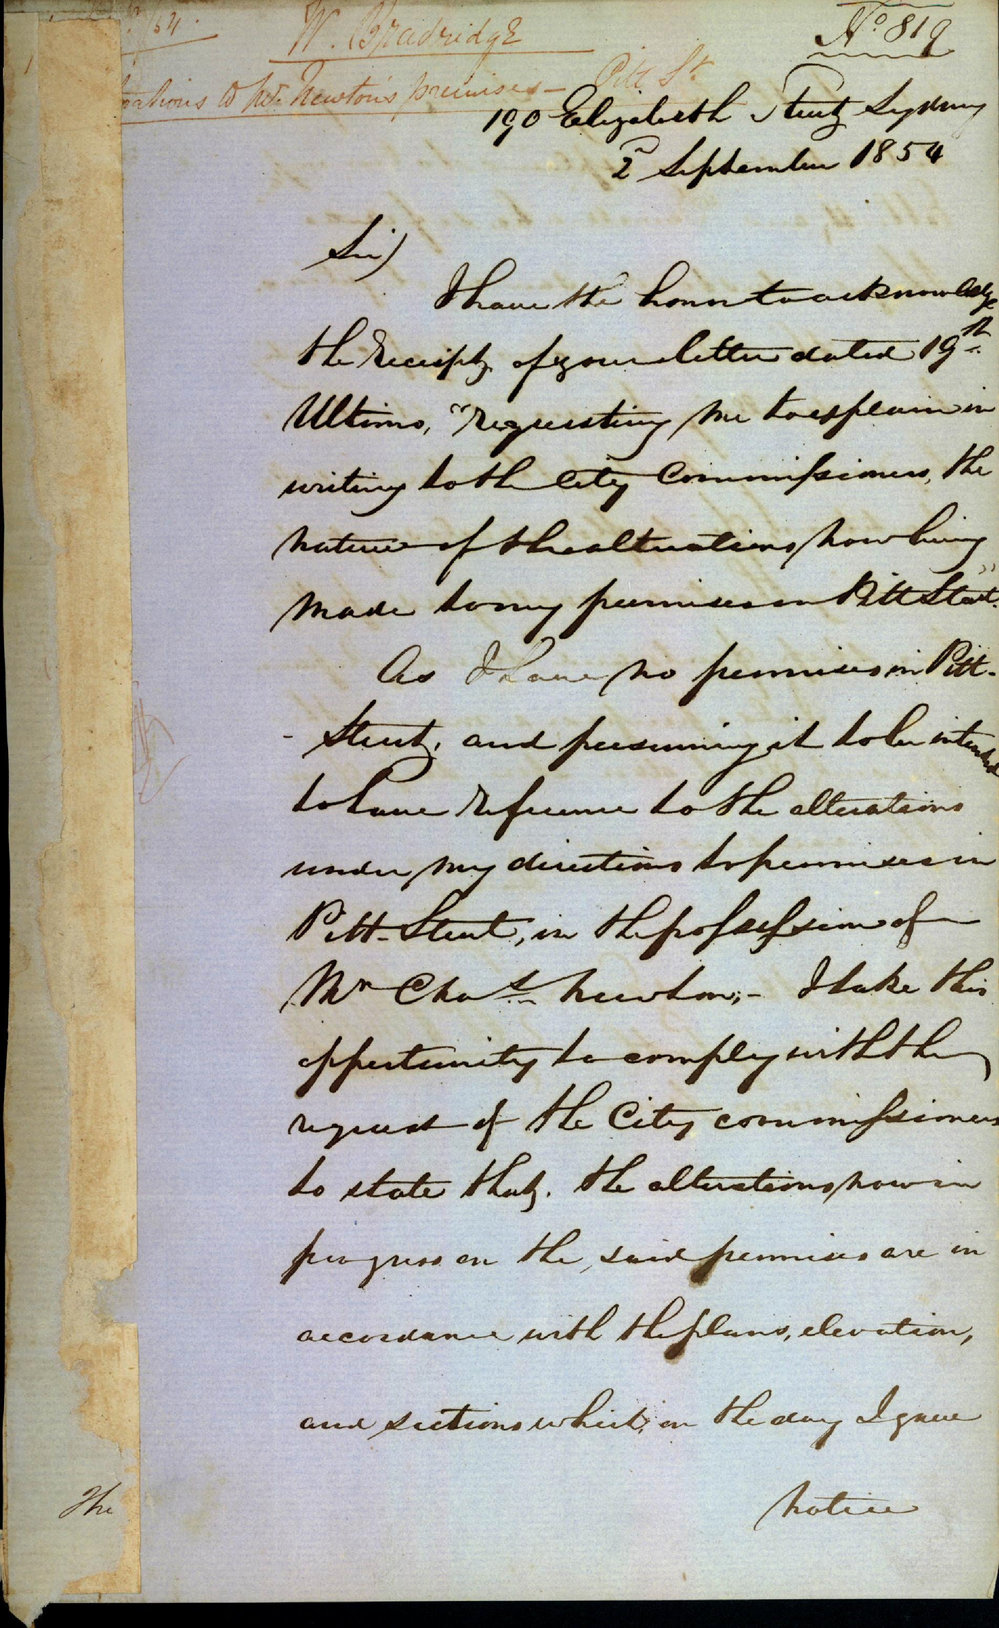 /54.
W. Bradridge
No. 819
Pitt St
rations to Mr. Newton's premises—
190 Elizabeth Street Sydney
2d September 1854
Sir)
I have the honor to acknowledge
the Receipt, of your letter dated 19th
Ultimo, "requesting me to explain in
writing to the City Commissioners, the
nature of the alterations now being
made to my premises in Pitt Street."
As I have no premises in Pitt-
- Street, and presuming it to be intended
to have reference to the alterations
under my directions to premises in
Pitt-Street, in the possession of
Mr Chas Newton;- I take this
opportunity to comply with the
request of the City commissioners
to state that, the alterations now in
progress on the said premises are in
accordance with the plans, elevation,
and sections which, on the day I gave
notice
The